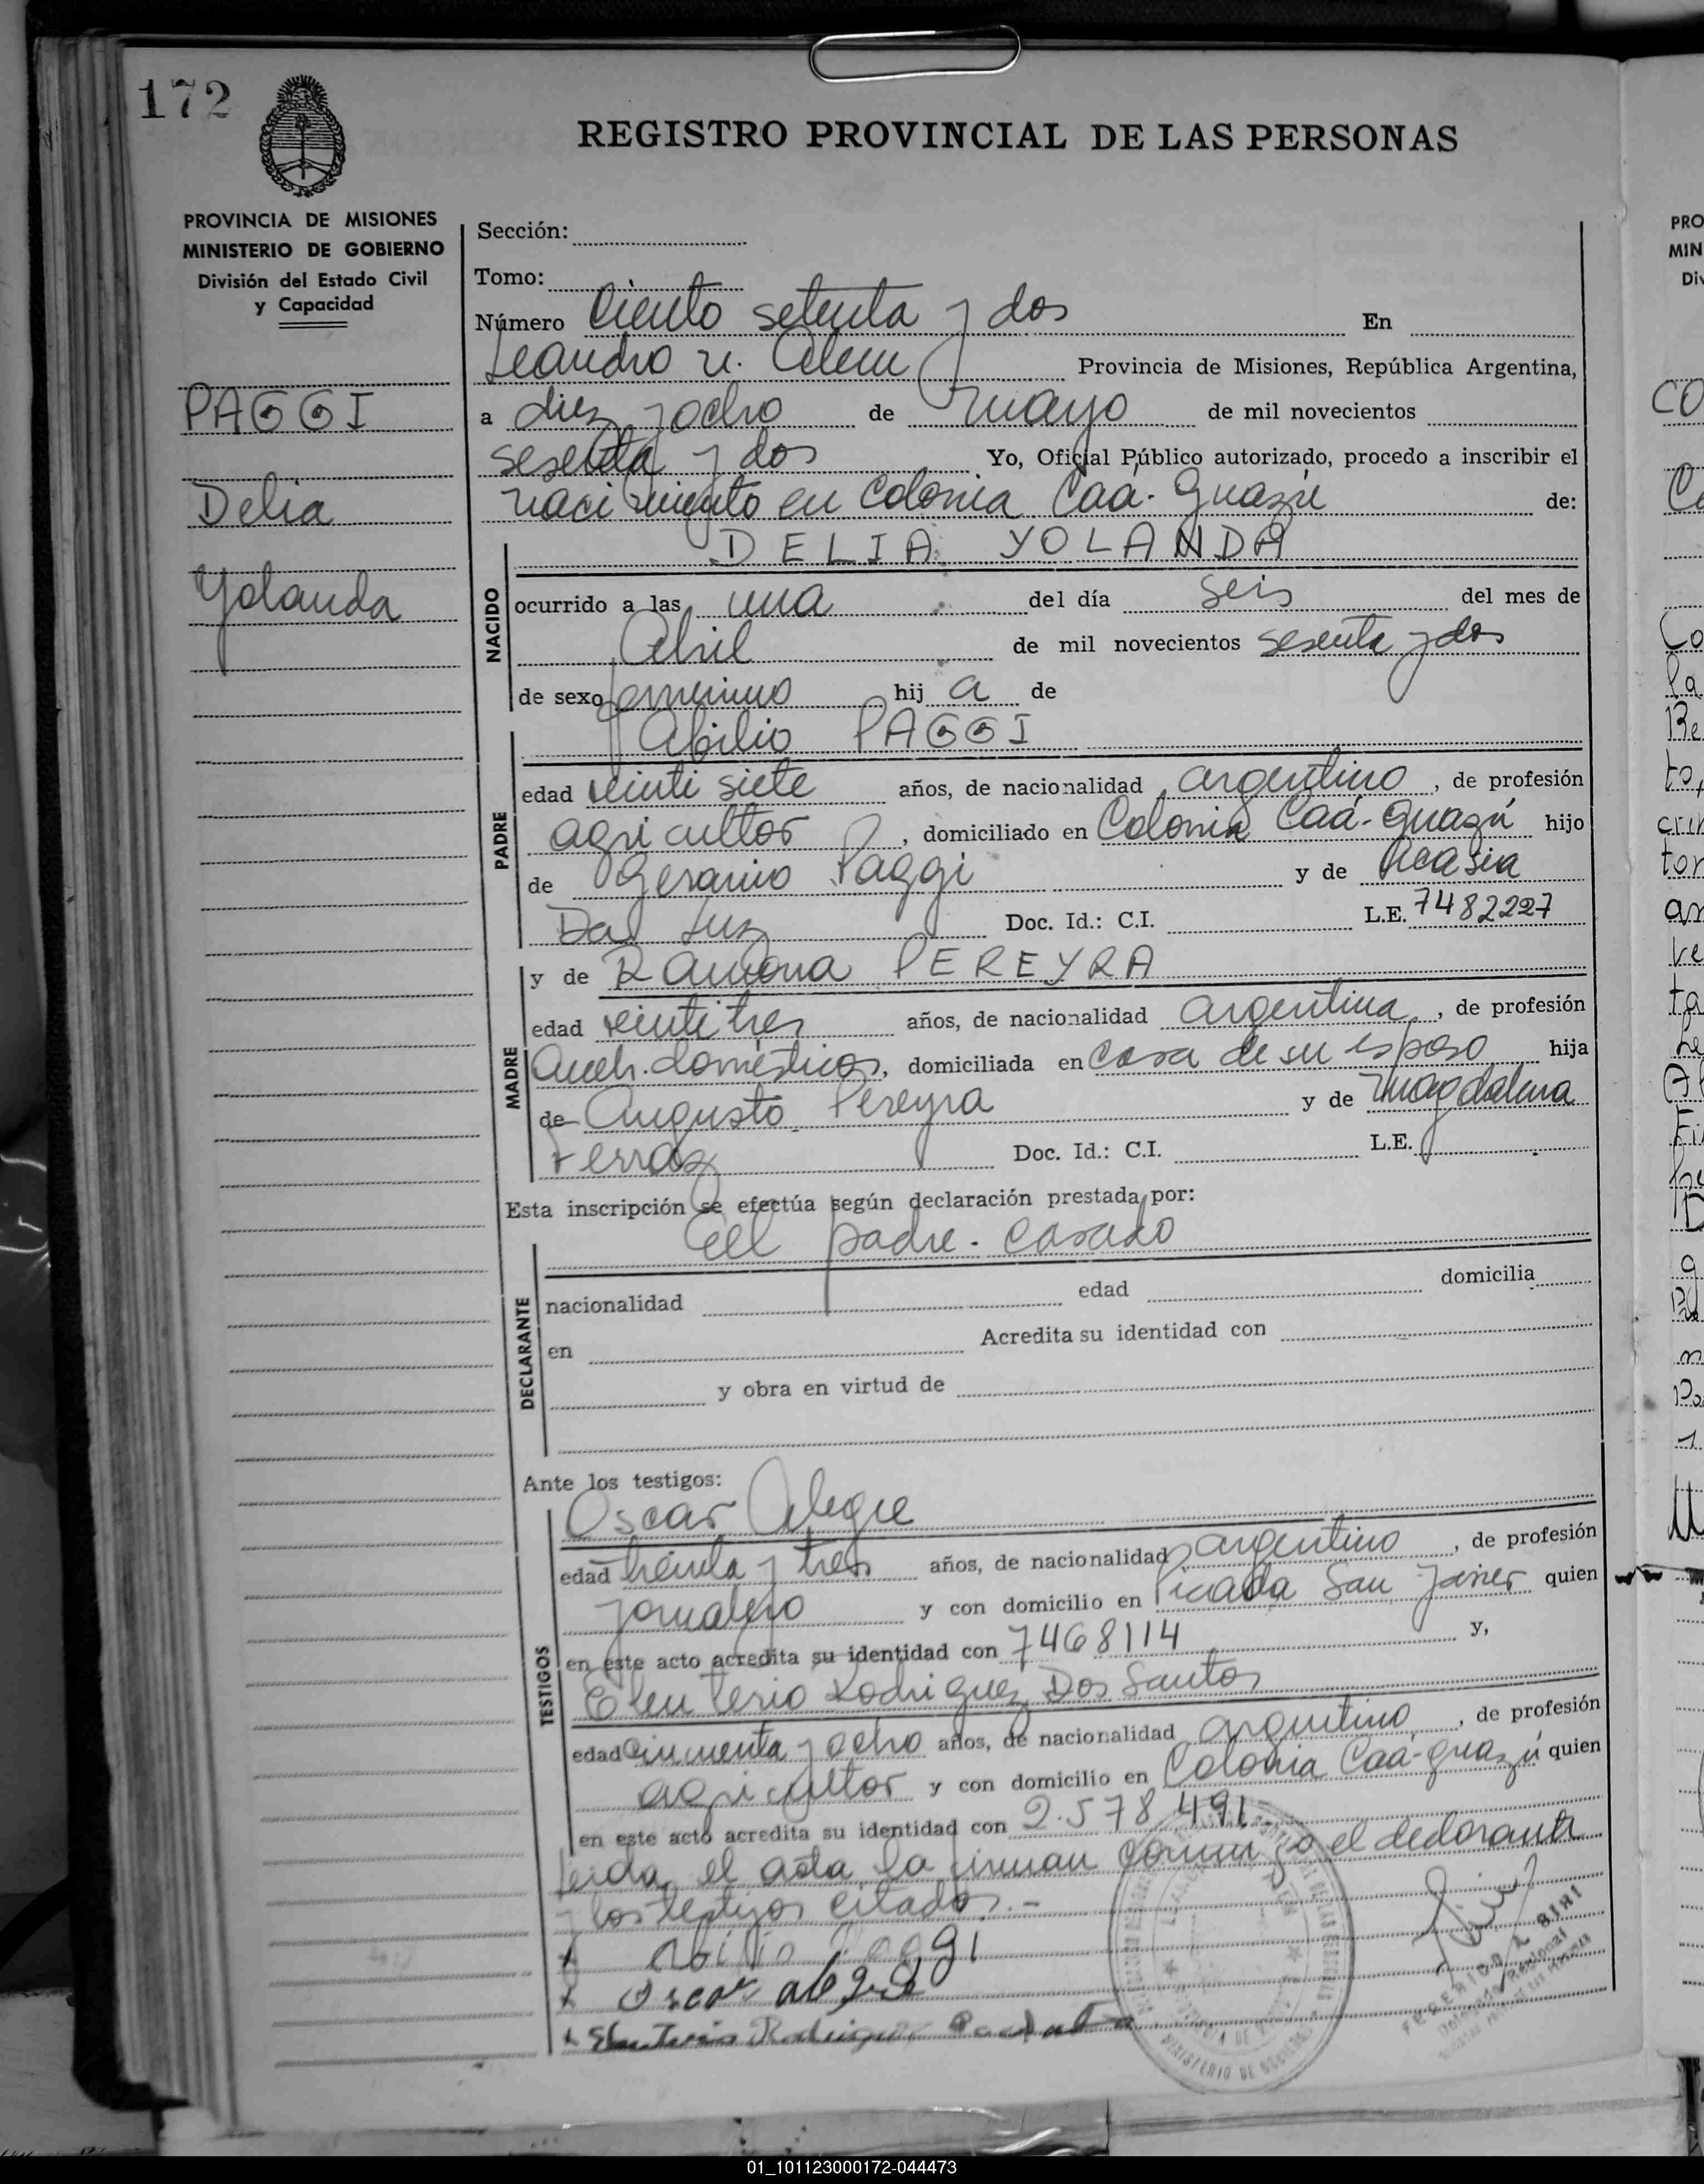 172
REGISTRO PROVINCIAL DE LAS PERSONAS
PROVINCIA DE MISIONES
MINISTERIO DE GOBIERNO
División del Estado Civil
y Capacidad
PAGGI
Delia
Yolanda
Sección:
Tomo:
Número Ciento setenta y dos En
Leandro N. Alem Provincia de Misiones, República Argentina,
a diez y ocho de mayo de mil novecientos
sesenta y dos Yo, Oficial Público autorizado, procedo a inscribir el
nacimiento en Colonia Caá-Guazú de:
DELIA YOLANDA
NACIDO
ocurrido a las una del día seis del mes de
Abril de mil novecientos sesenta y dos
de sexo femenino hij a de
Abilio PAGGI
PADRE
edad veinti siete años, de nacionalidad argentino, de profesión
agricultor, domiciliado en Colonia Caá-Guazú hijo
de Geranio Paggi y de Acasia
Da Luz Doc. Id.: C.I. L.E. 7482227
y de Ramona PEREYRA
MADRE
edad veinti tres años, de nacionalidad argentina, de profesión
domésticos, domiciliada en casa de su esposo hija
de Augusto Pereyra y de Magdalena
Ferraz Doc. Id.: C.I. L.E.
Esta inscripción se efectúa según declaración prestada por:
El padre. Casado
DECLARANTE
nacionalidad edad domicilia
en Acredita su identidad con
y obra en virtud de
Ante los testigos:
Oscar Alegre
TESTIGOS
edad treinta y tres años, de nacionalidad argentino, de profesión
jornalero y con domicilio en Picada San Javier quien
en este acto acredita su identidad con 7468114 y,
Eleuterio Rodriguez Dos Santos
edad cincuenta y ocho años, de nacionalidad argentino, de profesión
agricultor y con domicilio en Colonia Caá-guazú quien
en este acto acredita su identidad con 2.578.491.
Leida el acta la firman conmigo el declarante
y los testigos citados.-
x Abilio Paggi
x Oscar alegre
x Eleuterio Rodriguez
MINISTERIO DE GOBIERNO
FEDERICO BIHI
Delegado Regional
01_101123000172-044473